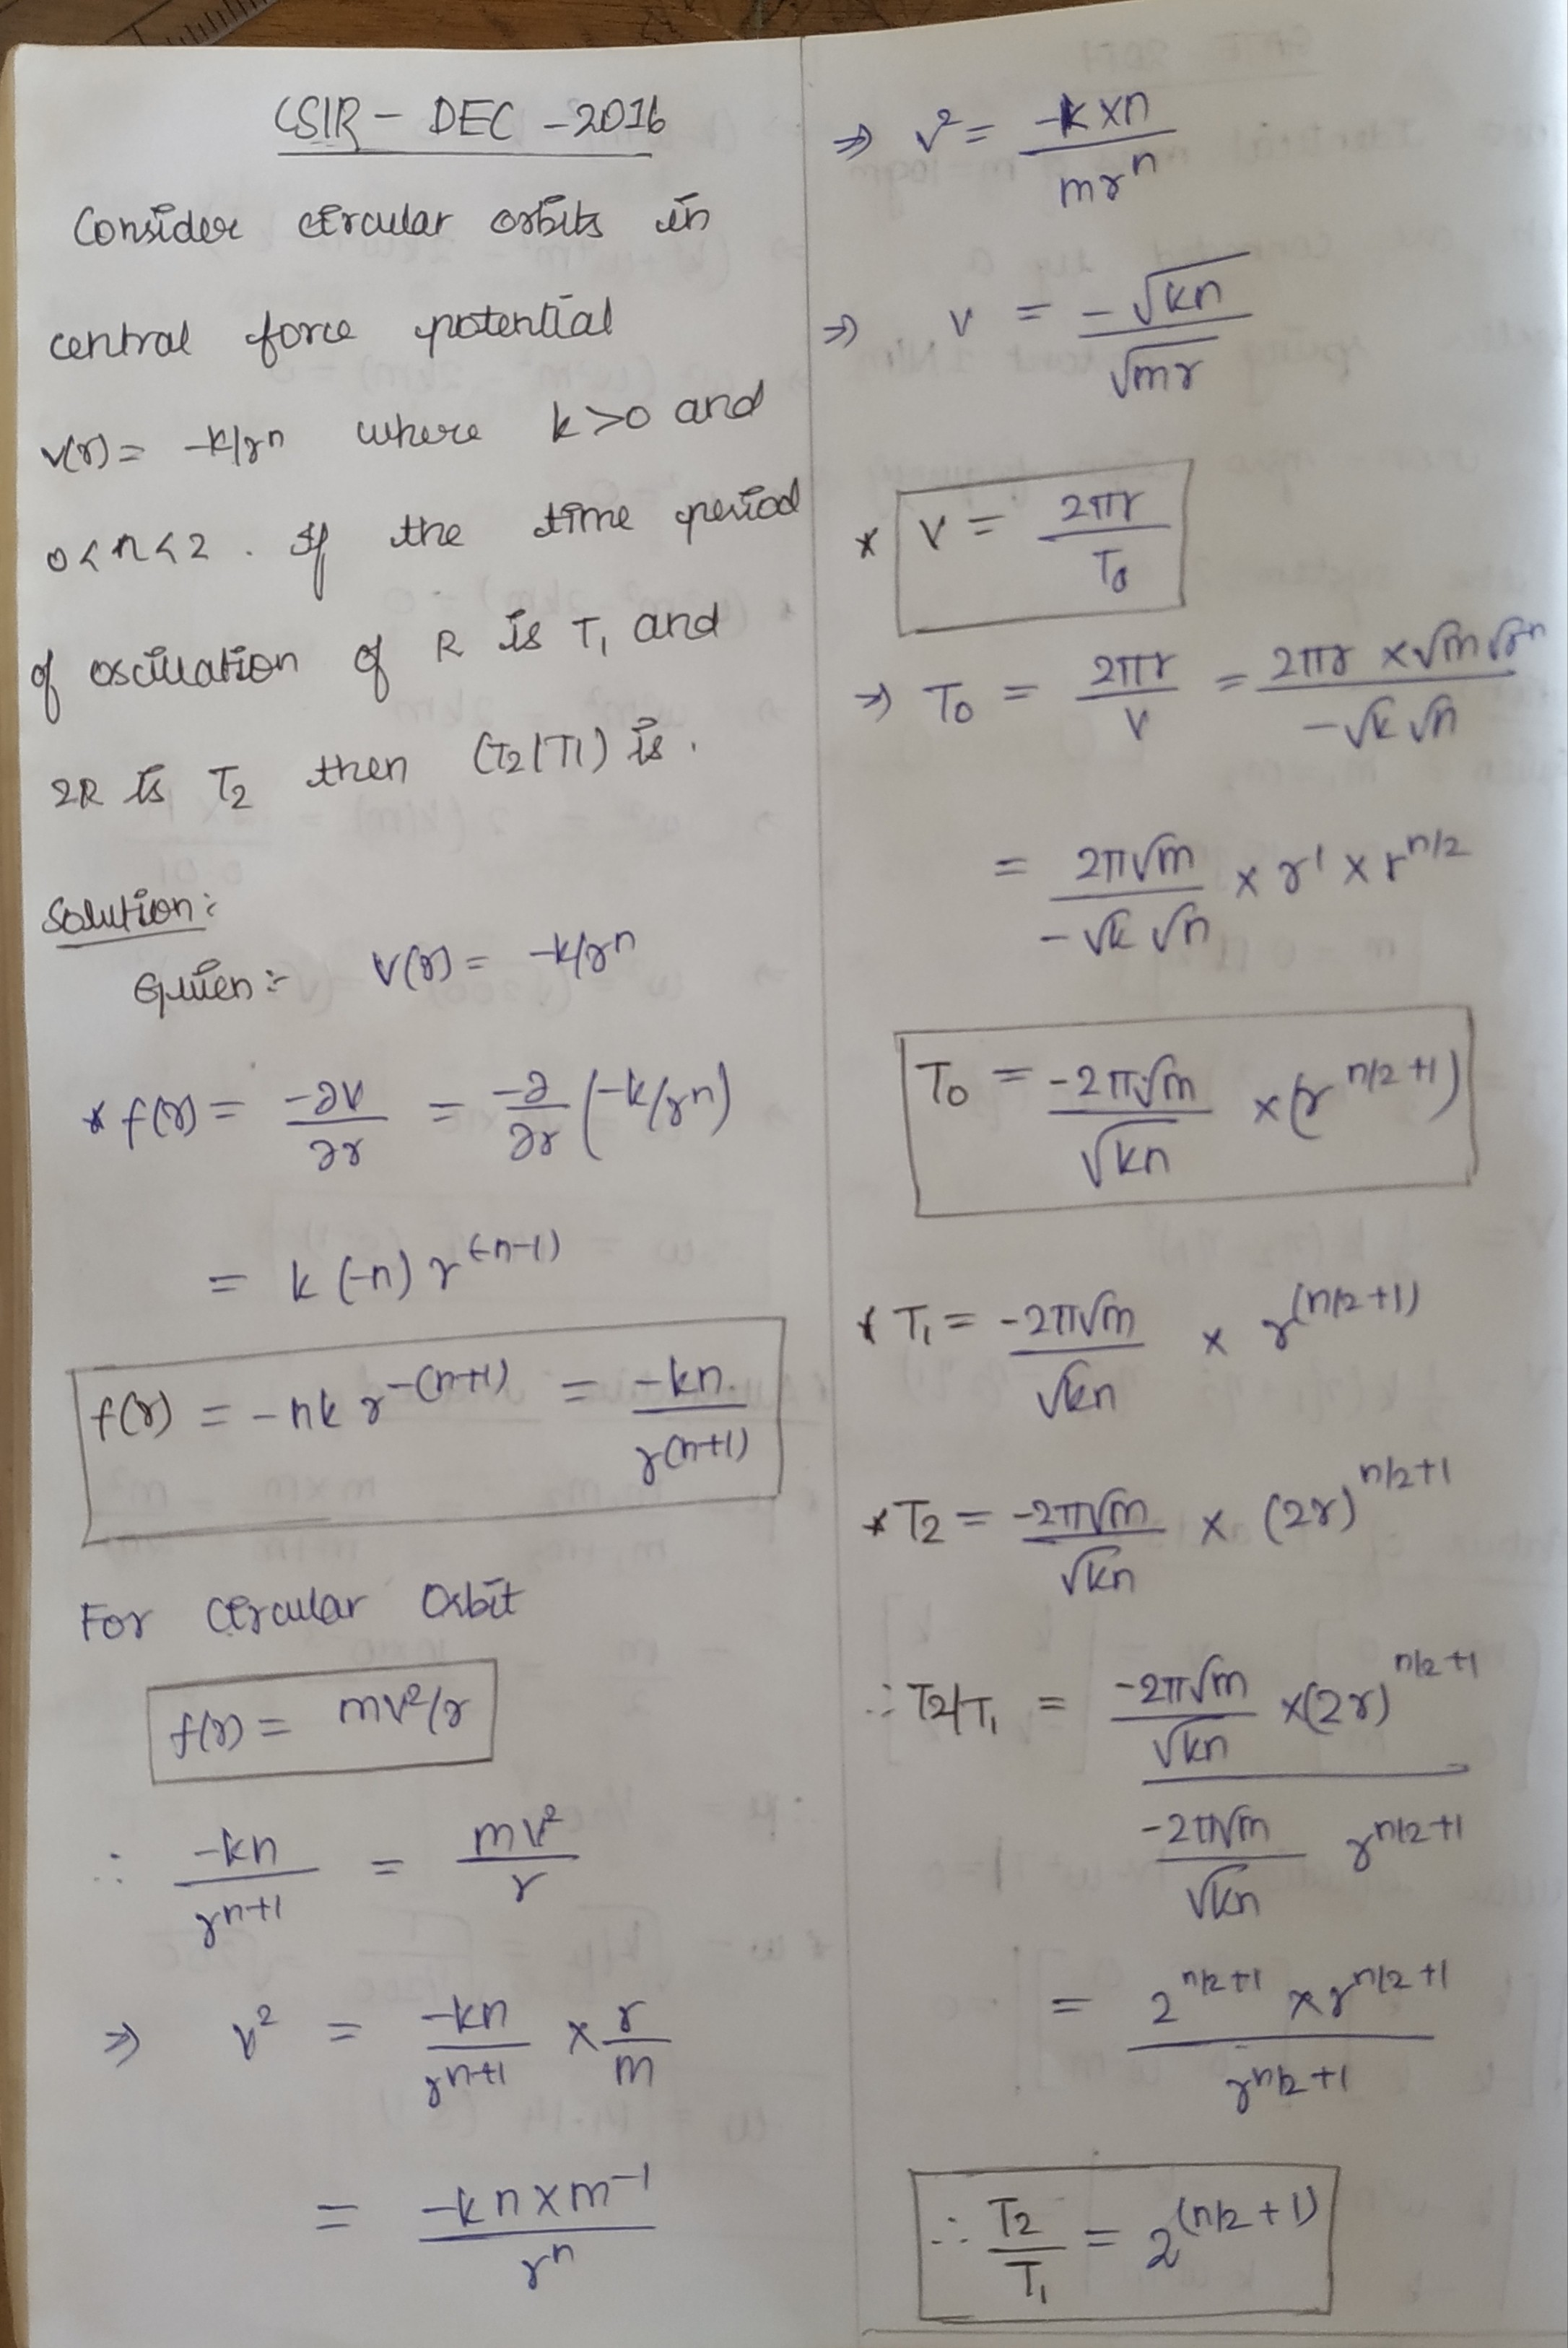 CSIR - DEC - 2016
Consider circular orbits in
central force potential
v(r) = -k/rⁿ where k>0 and
0<n<2. If the time period
of oscillation of R is T₁ and
2R is T₂ then (T2/T1) is.
Solution:
Given:- V(r) = -k/rⁿ
* f(r) = -∂V/∂r = -∂/∂r (-k/rⁿ)
= k (-n) r^(-n-1)
f(r) = -nk r^-(n+1) = -kn./r^(n+1)
For Circular Orbit
f(r) = mv²/r
∴ -kn/r^n+1 = mv²/r
⇒ v² = -kn/r^n+1 × r/m
= -kn×m⁻¹/rⁿ
⇒ v² = -k×n/mrⁿ
⇒ v = -√kn/√mr
* V = 2πr/T₀
⇒ T₀ = 2πr/V = 2πr ×√m√rⁿ/-√k √n
= 2π√m/-√k √n × r¹ × r^n/2
T₀ = -2π√m/√kn ×(r^n/2+1)
* T₁ = -2π√m/√kn × r^(n/2+1)
* T₂ = -2π√m/√kn × (2r)^n/2+1
∴ T2/T₁ = -2π√m/√kn ×(2r)^n/2+1 / -2π√m/√kn r^n/2+1
= 2^n/2+1 × r^n/2+1 / r^n/2+1
∴ T₂/T₁ = 2^(n/2+1)